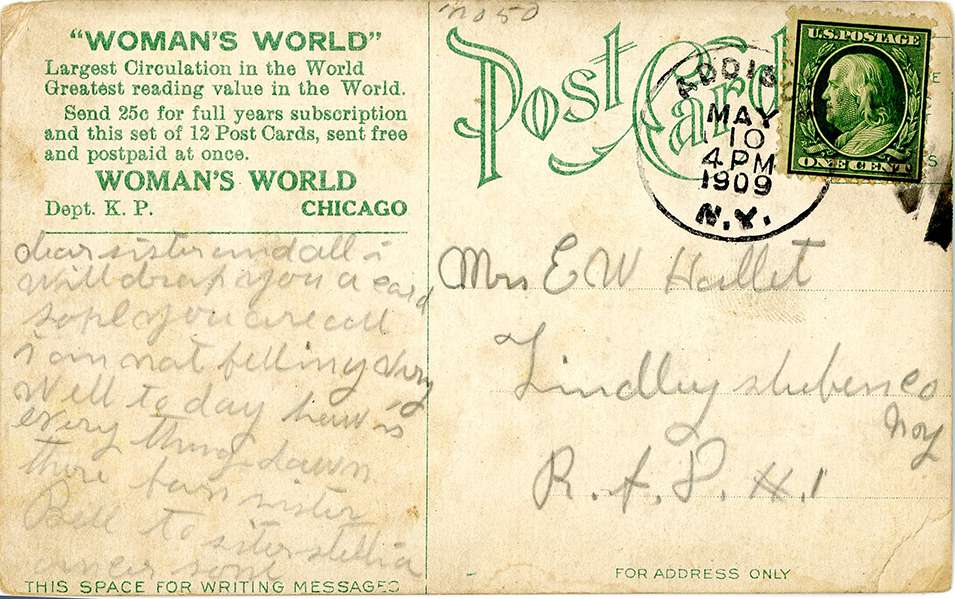 no 50
"WOMAN'S WORLD"
Largest Circulation in the World
Greatest reading value in the World.
Send 25c for full years subscription
and this set of 12 Post Cards, sent free
and postpaid at once.
WOMAN'S WORLD
Dept. K. P. CHICAGO
dear sister and all i
will drop you a card
hope you are all
i am not felling very
well to day how is
every thing down
there from sister
Bell to sister
THIS SPACE FOR WRITING MESSAGES
Post Card
ADDIS
MAY
10
4 PM
1909
N.Y.
U.S. POSTAGE
ONE CENT
Mrs E W Hallet
Lindley stuben co
n y
R. F. D. #1
FOR ADDRESS ONLY